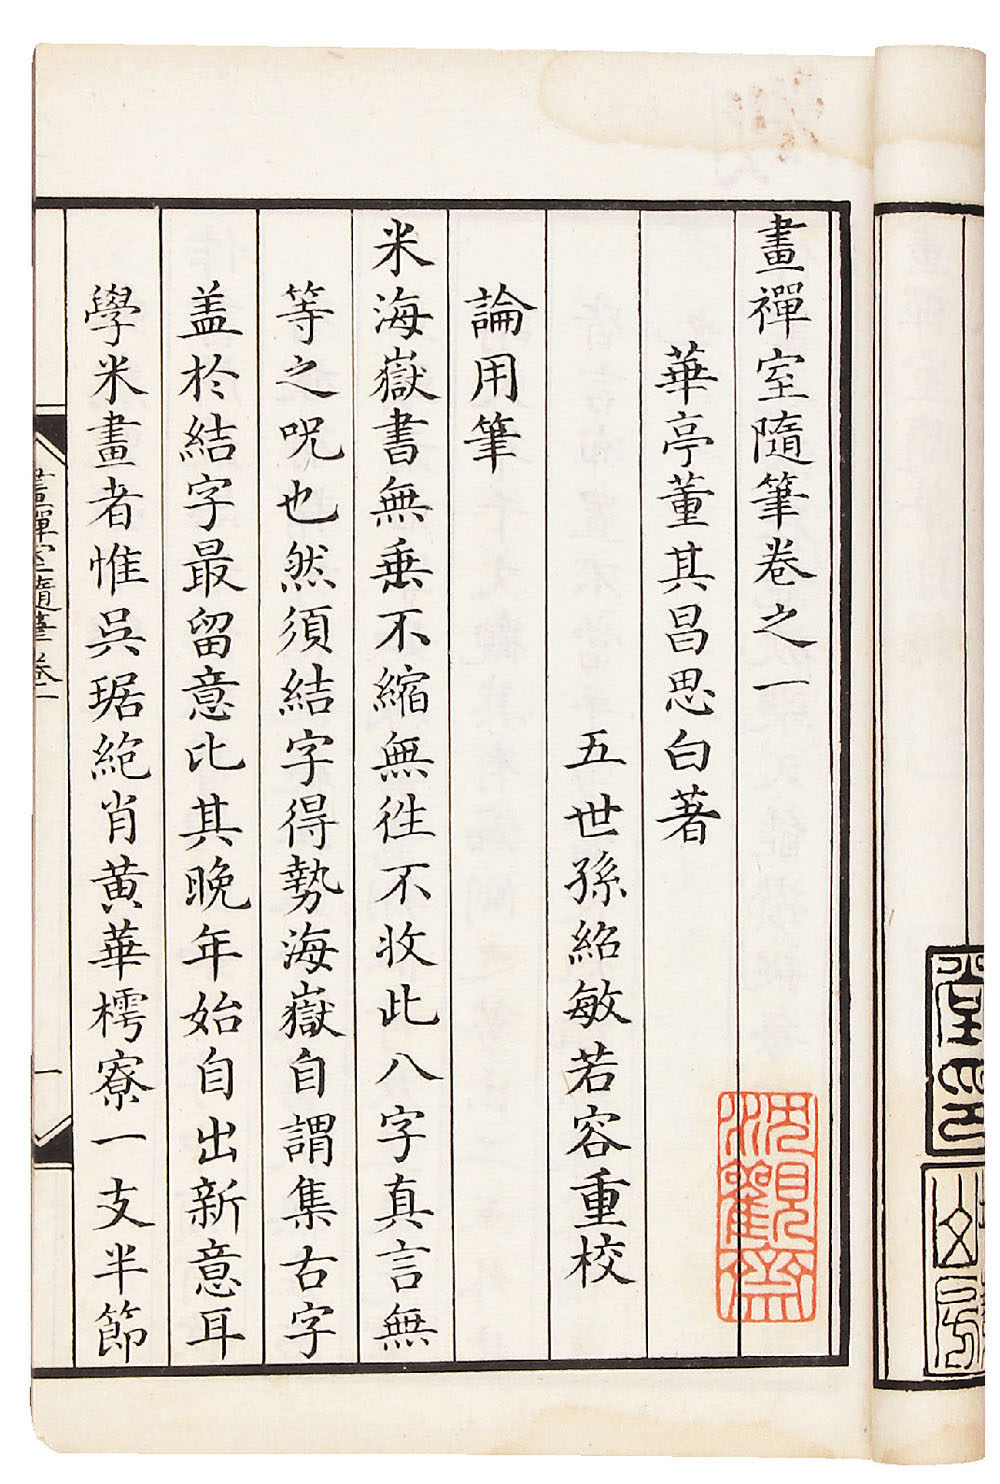 畫禪室隨筆卷之一
華亭董其昌思白著
五世孫紹敏若容重校
論用筆
米海嶽書無垂不縮無徃不收此八字真言無
等之呪也然須結字得勢海嶽自謂集古字
盖於結字最留意比其晚年始自出新意耳
學米畫者惟吳琚絶肖黄華樗寮一支半節
畫禪室隨筆卷一
一